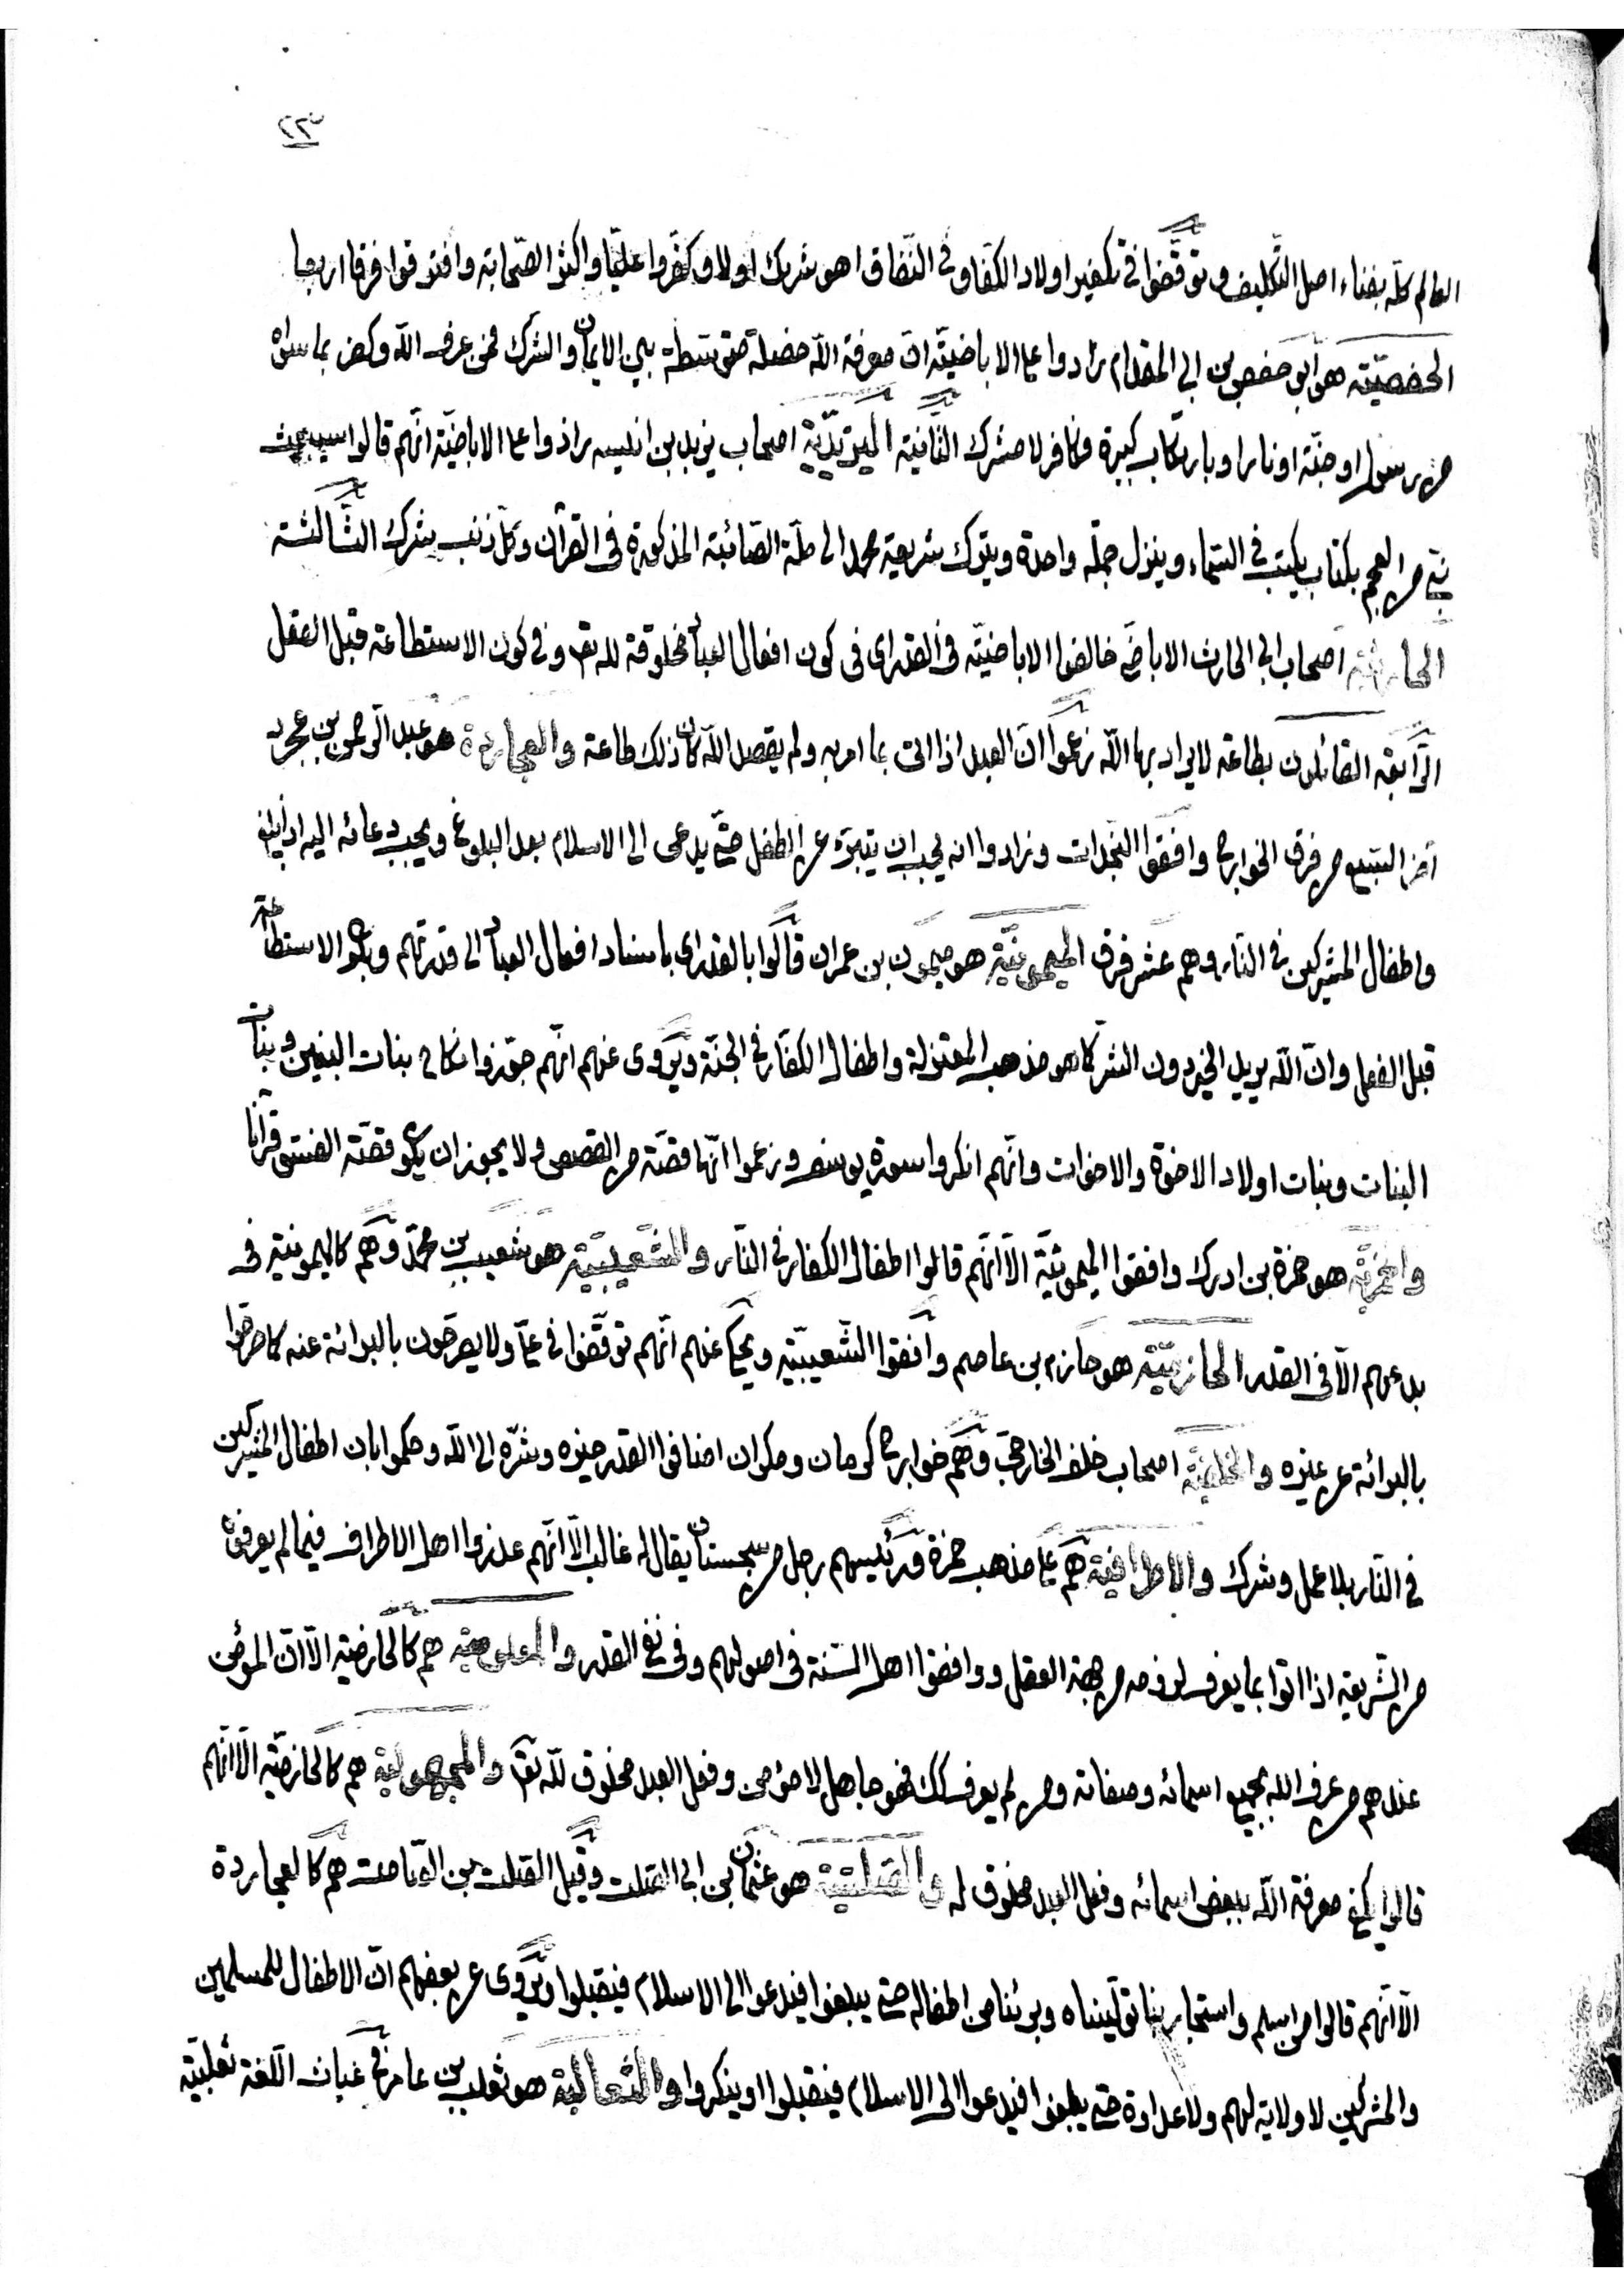 ٢٣
العالم كله بفناء اهل التكليف وتوقفوا في تكفير اولاد الكفار وفي النفاق اهو شرك اولا وكفروا عليا واكثر الصحابة وافترقوا فرقا اربعا
الحفصية هو ابو حفص بن ابي المقدام زادوا على الاباضية ان معرفة الله خصلة متوسطة بين الايمان والشرك فمن عرف الله وكفر بما سواه
من رسول او جنة او نار او بارتكاب كبيرة فكافر لا مشرك الثانية اليزيدية اصحاب يزيد بن انيسه زادوا على الاباضية انهم قالوا سيبعث
نبي من العجم بكتاب يكتب في السماء وينزل جملة واحدة ويترك شريعة محمد الى ملة الصائبة المذكورة في القرآن وكل ذنب شرك الثالثة
الحارثية اصحاب ابي الحارث الاباضي خالفوا الاباضية في القدر اى في كون افعال العباد مخلوقة لله تع وفي كون الاستطاعة قبل الفعل
الرابعة القائلون بطاعة لا يراد بها الله زعموا ان العبد اذا اتى بما امر به ولم يقصد الله كان ذلك طاعة والعجاردة هو عبد الرحمن بن عجرد
آخر السبع من فرق الخوارج وافقوا النجدات وزادوا انه يجب ان يتبرء عن الطفل حتى يدعى الى الاسلام بعد البلوغ ويجب دعائه اليه اذا بلغ
واطفال المشركين في النار وهم عشر فرق الميمونية هو ميمون بن عمران قالوا بالقدر اى باسناد افعال العباد الى قدرتهم وبكون الاستطاعة
قبل الفعل وان الله يريد الخير دون الشر كما هو مذهب المعتزلة واطفال الكفار في الجنة ويروى عنهم انهم جوزوا نكاح بنات البنين وبنات
البنات وبنات اولاد الاخوة والاخوات وانهم انكروا سورة يوسف وزعموا انها قصة من القصص ولا يجوز ان يكون قصة الفسق قرآنا
والحمزية هو حمزة بن ادرك وافقوا الميمونية الا انهم قالوا اطفال الكفار في النار والشعيبية هو شعيب بن محمد وهم كالميمونية في
بدعهم الا في القدر الحازمية هو حازم بن عاصم وافقوا الشعيبية ويحكى عنهم انهم توقفوا في علي ولا يصرحون بالبرائة عنه كما صرحوا
بالبرائة عن غيره والخلفية اصحاب خلف الخارجي وهم خوارج كرمان ومكران اضافوا القدر خيره وشره الى الله وحكموا بان اطفال المشركين
في النار بلا عمل وشرك والاطرافية هم على مذهب حمزة ورئيسهم رجل من سجستان يقال له غالب الا انهم عذروا اهل الاطراف فيما لم يعرفوه
من الشريعة اذا اتوا بما يعرف لزومه من جهة العقل ووافقوا اهل السنة في اصولهم وفي نفي القدر والمعلومية هم كالحازمية الا ان المؤمن
عندهم من عرف الله بجميع اسمائه وصفاته ومن لم يعرف كك فهو جاهل لا مؤمن وفعل العبد مخلوق لله تع والمجهولية هم كالحازمية الا انهم
قالوا يكفي معرفة الله ببعض اسمائه وفعل العبد مخلوق له والصلتية هو عثمان بن ابي الصلت وقيل الصلت بن الصامت هم كالعجاردة
الا انهم قالوا من اسلم واستجار بنا توليناه وبرئنا من اطفاله حتى يبلغوا فيدعوا الى الاسلام فيقبلوا ويروى عن بعضهم ان الاطفال للمسلمين
والمشركين لا ولاية لهم ولا عداوة حتى يبلغوا فيدعوا الى الاسلام فيقبلوا او ينكروا والثعالبة هو ثعلب بن عامر في غياث اللغة ثعلبية